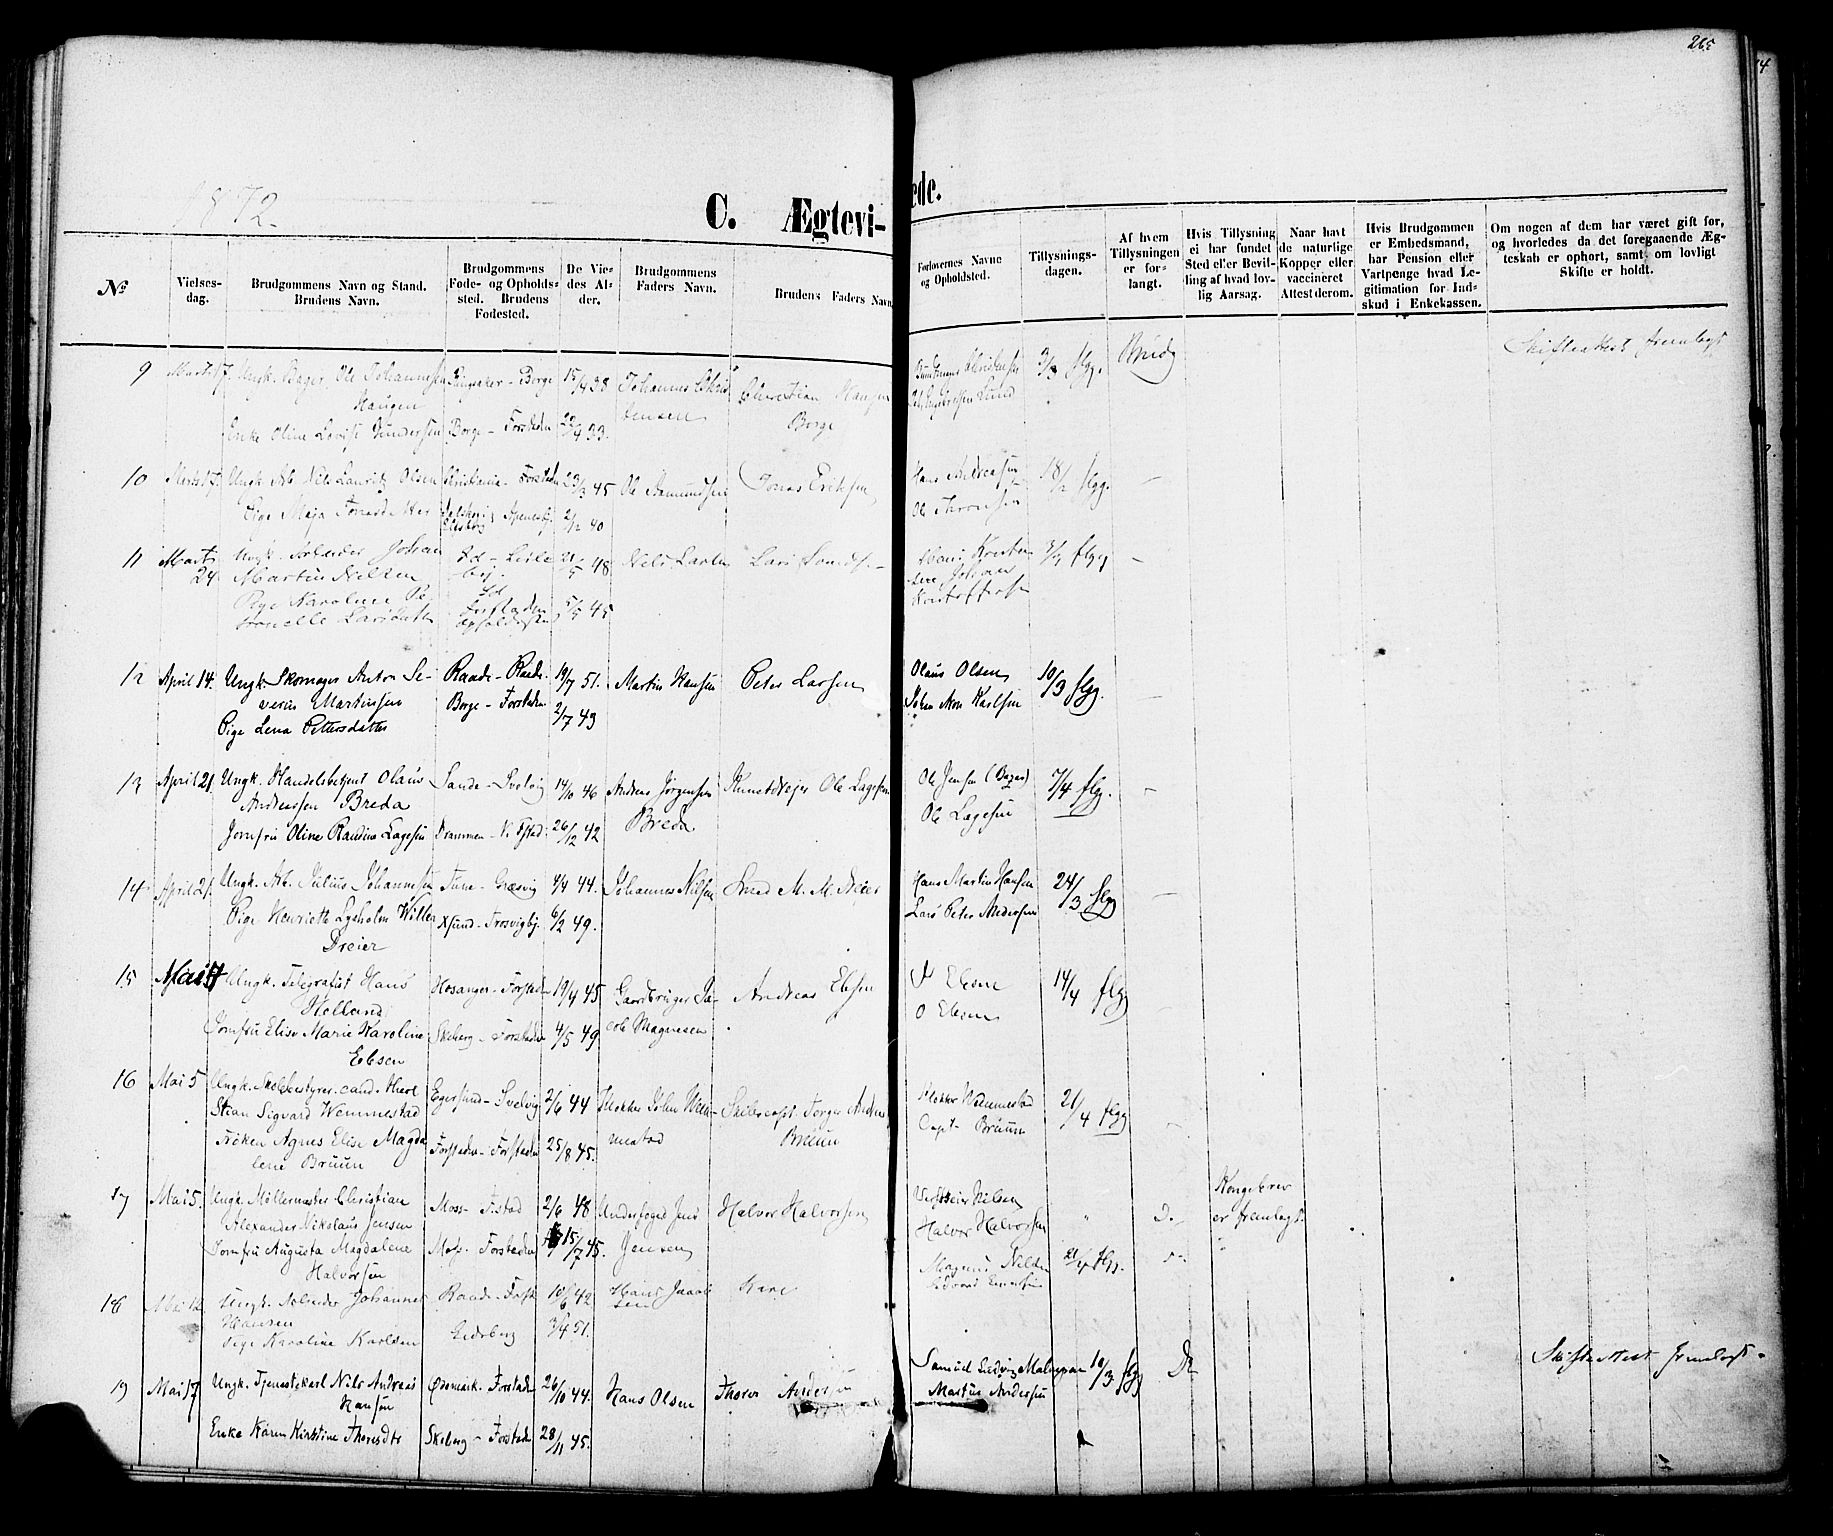 265
1872.
C. Ægtevi-
ede.
№
Vielses-
dag.
Brudgommens Navn og Stand.
Brudens Navn.
Brudgommens
Føde- og Opholds-
sted. Brudens
Fødested.
De Vie-
des Al-
der.
Brudgommens
Faders Navn.
Brudens Faders Navn
Forlovernes Navne
og Opholdsted.
Tillysnings-
dagen.
Af hvem
Tillysningen
er for-
langt.
Hvis Tillysning
ei har fundet
Sted eller Bevil-
ling af hvad lov-
lig Aarsag.
Naar havt
de naturlige
Kopper eller
vaccineret
Attest derom.
Hvis Brudgommen
er Embedsmand,
har Pension eller
Vartpenge hvad Le-
gitimation for Ind-
skud i Enkekassen.
Om nogen af dem har været gift før,
og hvorledes da det foregaaende Æg-
teskab er ophørt, samt om lovligt
Skifte er holdt.
9 Marts 17 Ungk. Bager Ole Johannesen Ringsaker - Borge 15/9 38 Johannes
Haugen
Christian Hansen
Borge
Enke Oline Lovise Gundersen Borge - Forstaden 33.
3/3 flgg. Brudg
Skifteattest fremlagt
10 Marts 17. Ungk. Arb. Nils Lauritz Olsen Christiania - Forstaden 23/3 45 Ole Jonas Eriksen
Pige Maja 2/2 40
Hans Andreasen 18/2 flgg.
Ole Thronsen
11 Marts
24 Ungk. Arbeider Johan 21/5 48 Nils Larsen Lars
Martin Nilsen
Pige Karoline Pe-
tronelle Larsdatter 5/5 45
flgg
12 April 14. Ungk. Skomager Anton Se- Raade - Raade 19/7 51. Martin Hansen Peter Larsen
verin Martinsen Borge - Forstaden
Pige Lena Pettersdatter 2/7 43
Olaus Olsen 10/3 flgg.
Johan Karlsen
13 April 21. Ungk. Handelsbetjent Olaus Sande - Svelvig 14/10 46 Andreas Jørgensen Ole Lagesen
Andreassen Breda Breda
Jomfru Oline Randine Lagesen Drammen - V. Fstad. 26/12 42
Ole Jensen (Bager) 7/4 flg.
Ole Lagesen
14 April 21. Ungk. Arb. Julius Johannesen Tune - Græsvig 4/4 44. Johannes Nilsen Smed M. M. Dreier
Pige Henriette Lysholm Willea Xsund - Trosvigbj. 6/2 49.
Dreier
Hans Martin Hansen 24/3 flgg
Lars Peter Andersen
15 Mai Ungk. Telegrafist Hans Hosanger - Forstaden 19/4 45 Gaardbruger Ja- Andreas Ebsen
Helland cob Magnesen
Jomfru Elise Marie Karoline Skeberg - Forstaden 4/5 49
Ebsen
Ebsen 14/4 flgg
O Ebsen
16 Mai 5 Ungk. Skolebestyrer cand. theol Egersund - Svelvig 2/6 44 Klokker John Wem- Skibscapt. Torger Andreas
Stian Sigvard Wemmestad mestad Bruun
Frøken Agnes Elise Magda Forstaden - Forstaden 25/8 45.
lene Bruun
Klokker Wemmestad 21/4 flgg
Capt. Bruun
17 Mai 5. Ungk. Møllermester Christian Moss - Fstad 2/6 48 Underfoged Jens Halvor Halvorsen
Alexander Nikolaus Jensen Jensen
Jomfru Augusta Magdalene Moss. Forstaden 15/7 45.
Halvorsen
Nilsen Kongebrev
Halvor Halvorsen er fremlagt.
18 Mai 12 Ungk. Arbeider Johannes Raade - Forst 10/6 42 Hans Jacob
Hansen sen
Pige Karoline Karlsen Eidsberg 3/4 51.
Magnus Nilsen 21/4 flgg.
19 Mai 17 Ungk. Tjenestekarl Nils Andreas Ødemark - Forstaden 26/10 44. Hans Olsen Thorer Andersen
Hansen
Enke Karen Kirstine Thoresdtr Skeberg - Forstaden 28/11 45.
Samuel Ludvig Malmgran 10/3 flgg Do
Martin Andersen
Skifteattest fremlagt.